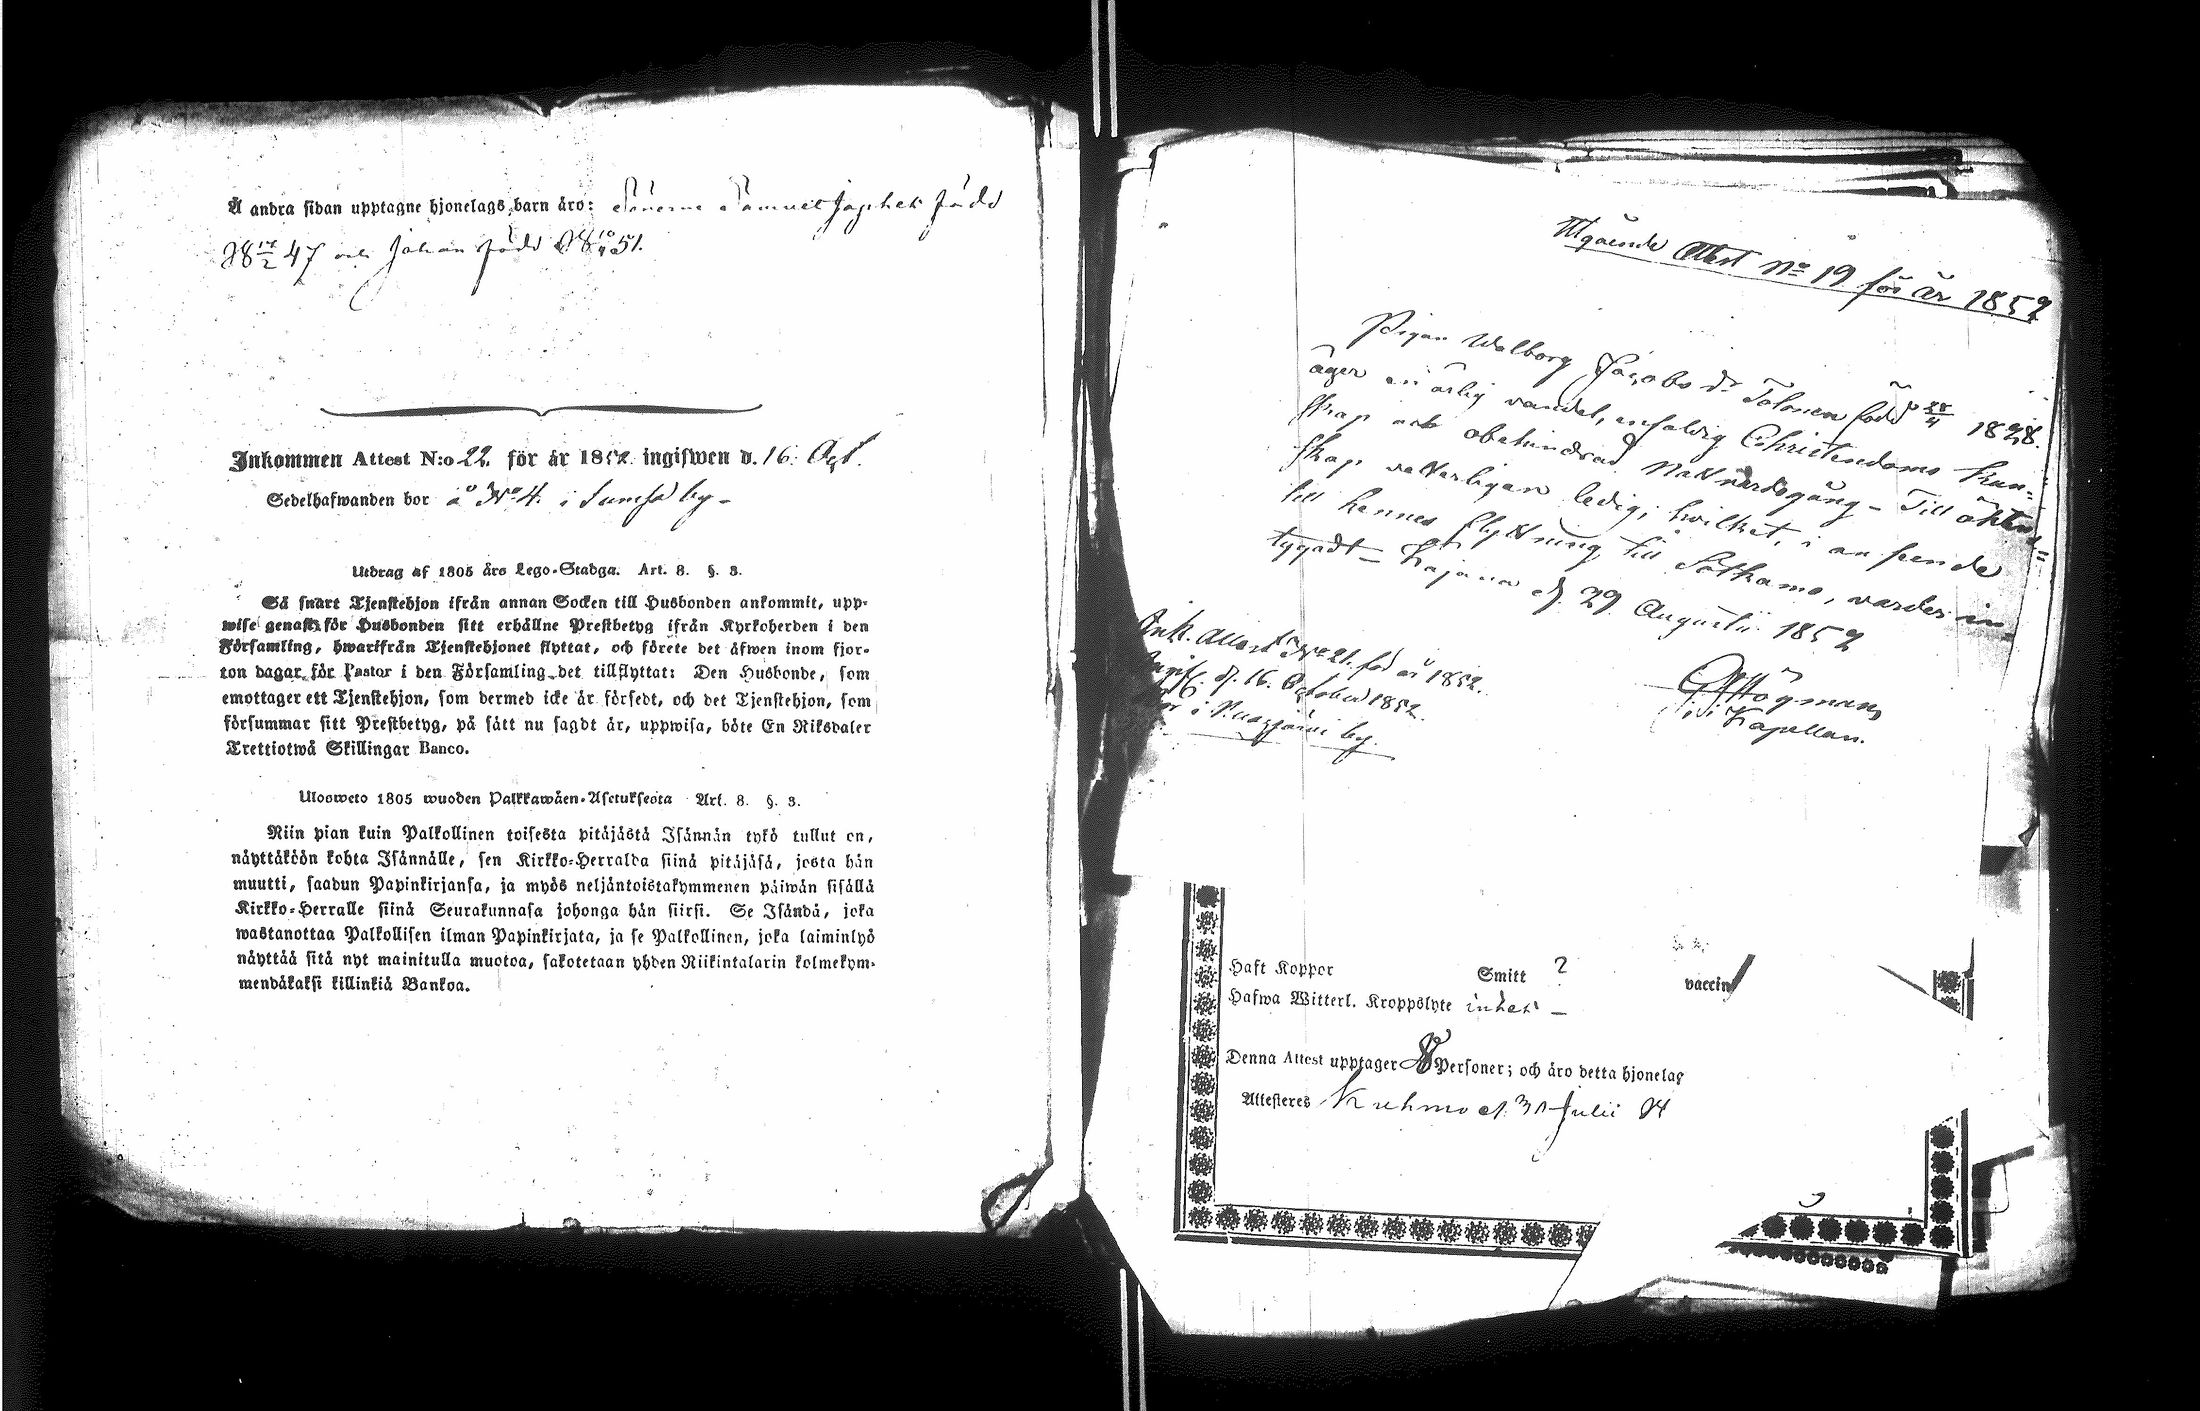 Å andra sidan upptagne hjonelags barn äro: Sönerne Samuel Japhet född
18 17/2 47 och Johan född 18 10/4 51.
Inkommen Attest N:o 22. för år 1852. ingifwen d. 16. Oct.
Sedelhafwanden bor å No 4. i by
Utdrag af 1805 års Lego-Stadga. Art. 8. §. 3.
Så snart Tjenstehjon ifrån annan Socken till Husbonden ankommit, upp-
wise genast för Husbonden sitt erhållne Prestbetyg ifrån Kyrkoherden i den
Församling, hwarifrån Tjenstehjonet flyttat, och förete det äfwen inom fjor-
ton dagar för Pastor i den Församling det tillflyttat: Den Husbonde, som
emottager ett Tjenstehjon, som dermed icke är försedt, och det Tjenstehjon, som
försummar sitt Prestbetyg, på sätt nu sagdt är, uppwisa, böte En Riksdaler
Trettiotwå Skillingar Banco.
Ulosweto 1805 wuoden Palkkawäen-Asetuksesta Art. 8. §. 3.
Niin pian kuin Palkollinen toisesta pitäjästä Isännän tykö tullut on,
näyttäköön kohta Isännälle, sen Kirkko-Herralda siinä pitäjäsä, josta hän
muutti, saadun Papinkirjansa, ja myös neljäntoistakymmenen päiwän sisällä
Kirkko-Herralle siinä Seurakunnasa johonga hän siirsi. Se Isändä, joka
wastanottaa Palkollisen ilman Papinkirjata, ja se Palkollinen, joka laiminlyö
näyttää sitä nyt mainitulla muotoa, sakotetaan yhden Riikintalarin kolmekym-
mendäkaksi killinkiä Bankoa.
Utgående Attest No 19 för år 1852
Pigan Walborg Jacobs dr Tolonen född 28/4 1828.
äger en ärlig vandel, enfaldig Christendoms kun-
skap och obehindrad Nattvardsgång - Till äkten-
skap vetterligen ledig; hvilket, i an seende
till hennes flyttning till Sotkamo, varder in-
tygadt - Kajana d. 29 Augusti 1852
Högman
Kapellan.
Ink. Attest No 21. för år 1852.
Ingif. d. 16. October 1852.
i by.
Haft Koppor Smitt ? vaccin
Hafwa Witterl. Kroppslyte intet -
Denna Attest upptager Personer; och äro detta hjonelag
Attesteres Kuhmo d. 30 Julii 18